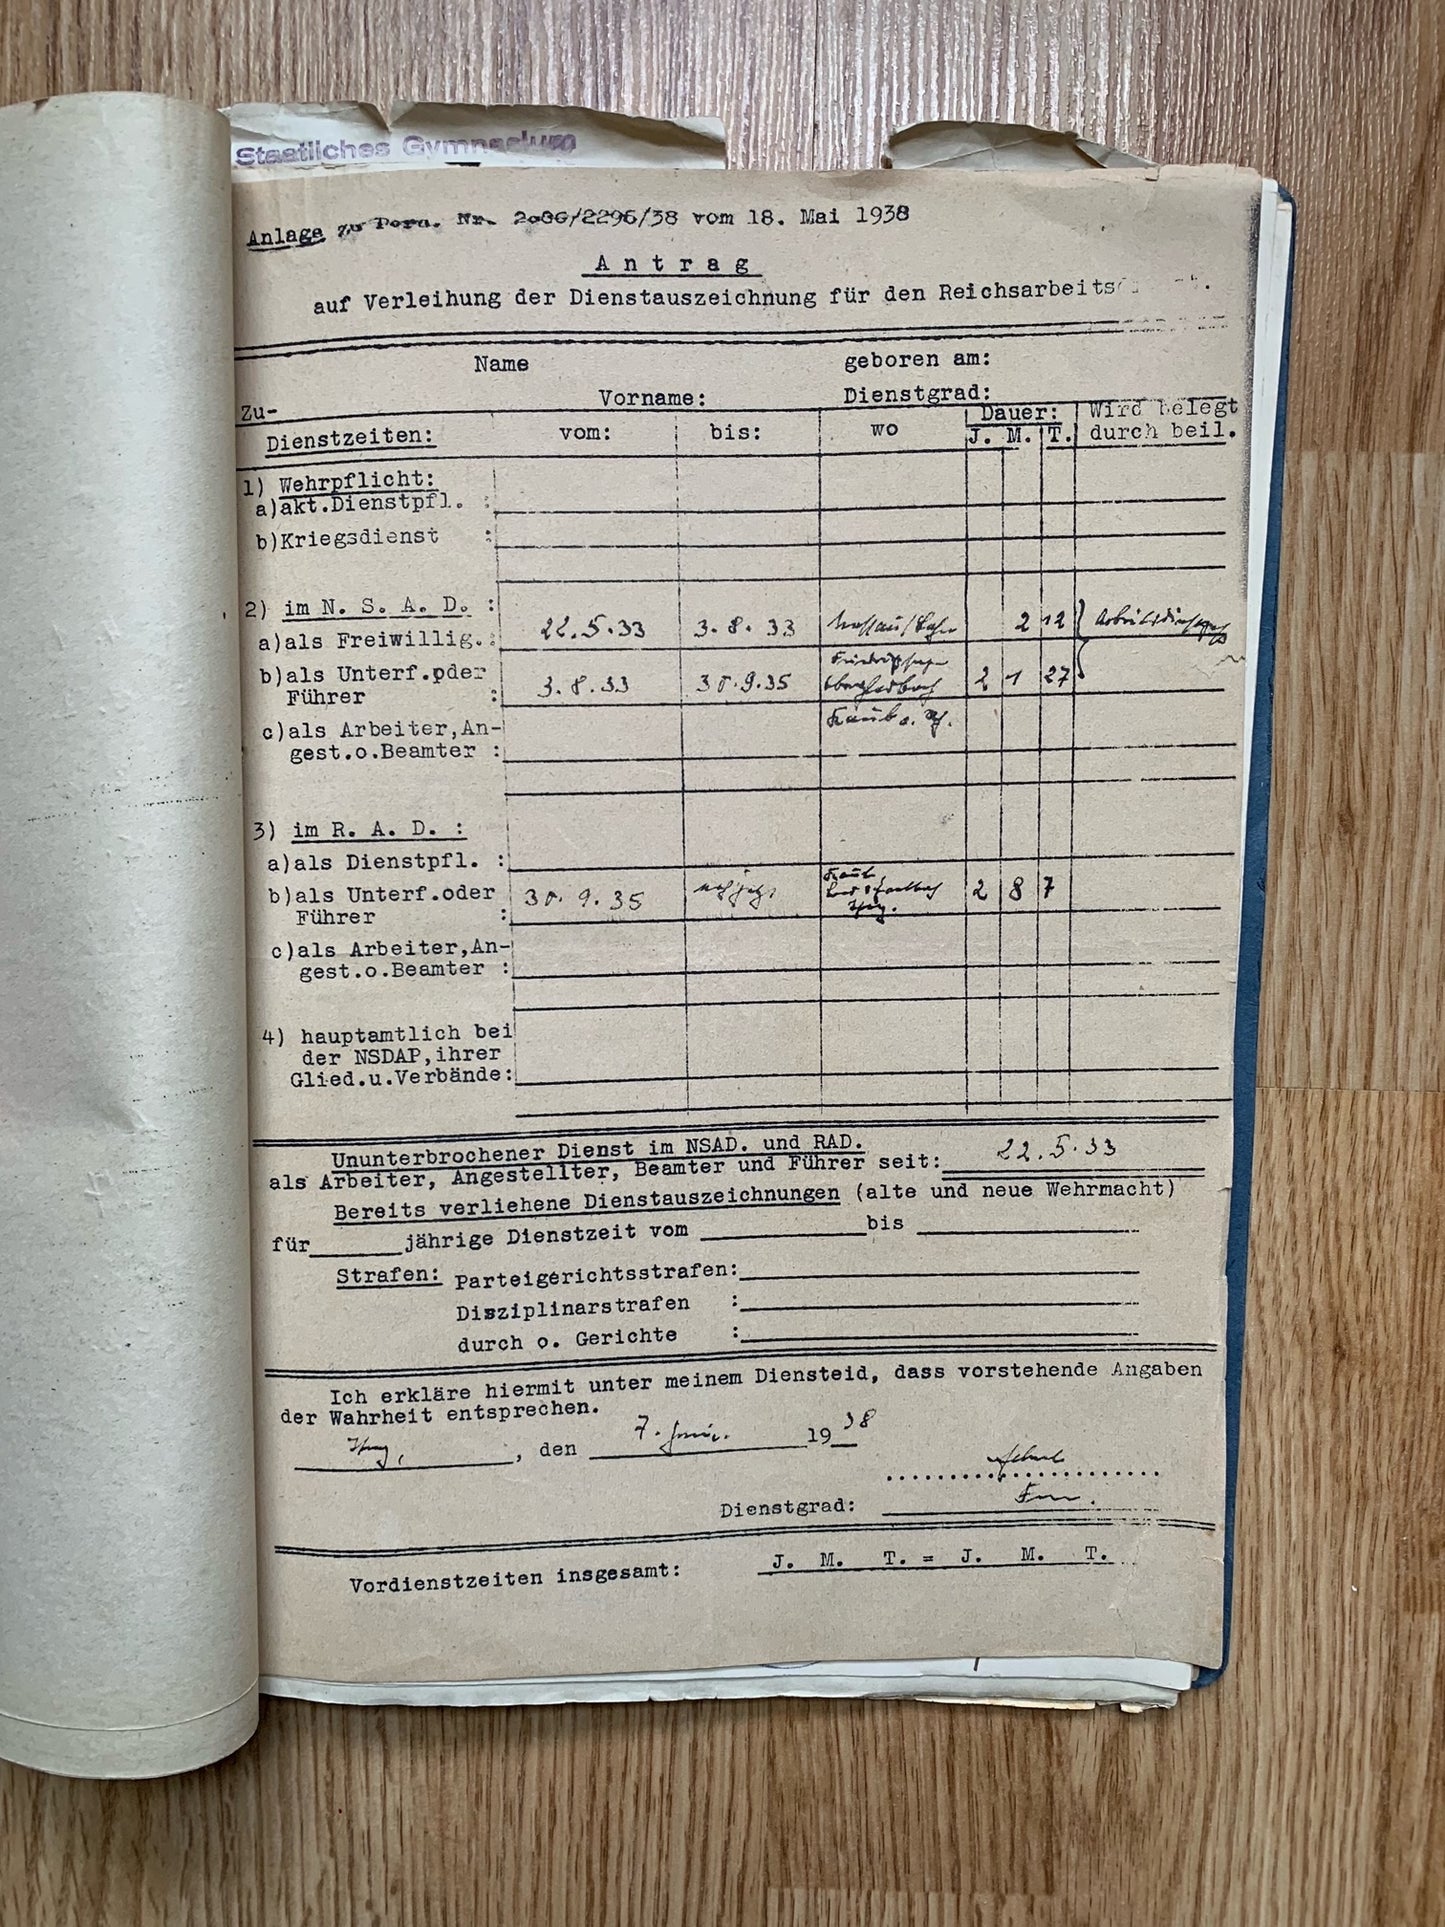 Staatliches Gymnasium
Anlage zu Pers. Nr. 2086/2296/38 vom 18. Mai 1938
Antrag
auf Verleihung der Dienstauszeichnung für den Reichsarbeits
Name geboren am:
Zu- Vorname: Dienstgrad:
Dienstzeiten: vom: bis: wo Dauer: J. M. T. Wird belegt durch beil.
1) Wehrpflicht:
a)akt.Dienstpfl. :
b)Kriegsdienst :
2) im N. S. A. D. :
a)als Freiwillig.: 22.5.33 3.8.33 Nassau/Lahn 2 12
Friedrichssegen
b)als Unterf.oder
Führer : 3.8.33 30.9.35 2 1 27
c)als Arbeiter,An- Kaub a. Rh.
gest.o.Beamter :
3) im R. A. D. :
a)als Dienstpfl. :
b)als Unterf.oder
Führer : 30.9.35 Kaub, 2 8 7
c)als Arbeiter,An-
gest.o.Beamter :
4) hauptamtlich bei
der NSDAP,ihrer
Glied.u.Verbände:
Ununterbrochener Dienst im NSAD. und RAD.
als Arbeiter, Angestellter, Beamter und Führer seit: 22.5.33
Bereits verliehene Dienstauszeichnungen (alte und neue Wehrmacht)
für jährige Dienstzeit vom bis
Strafen: Parteigerichtsstrafen:
Disziplinarstrafen :
durch o. Gerichte :
Ich erkläre hiermit unter meinem Diensteid, dass vorstehende Angaben
der Wahrheit entsprechen.
, den 7. Juni. 1938
Dienstgrad:
Vordienstzeiten insgesamt: J. M. T. = J. M. T.